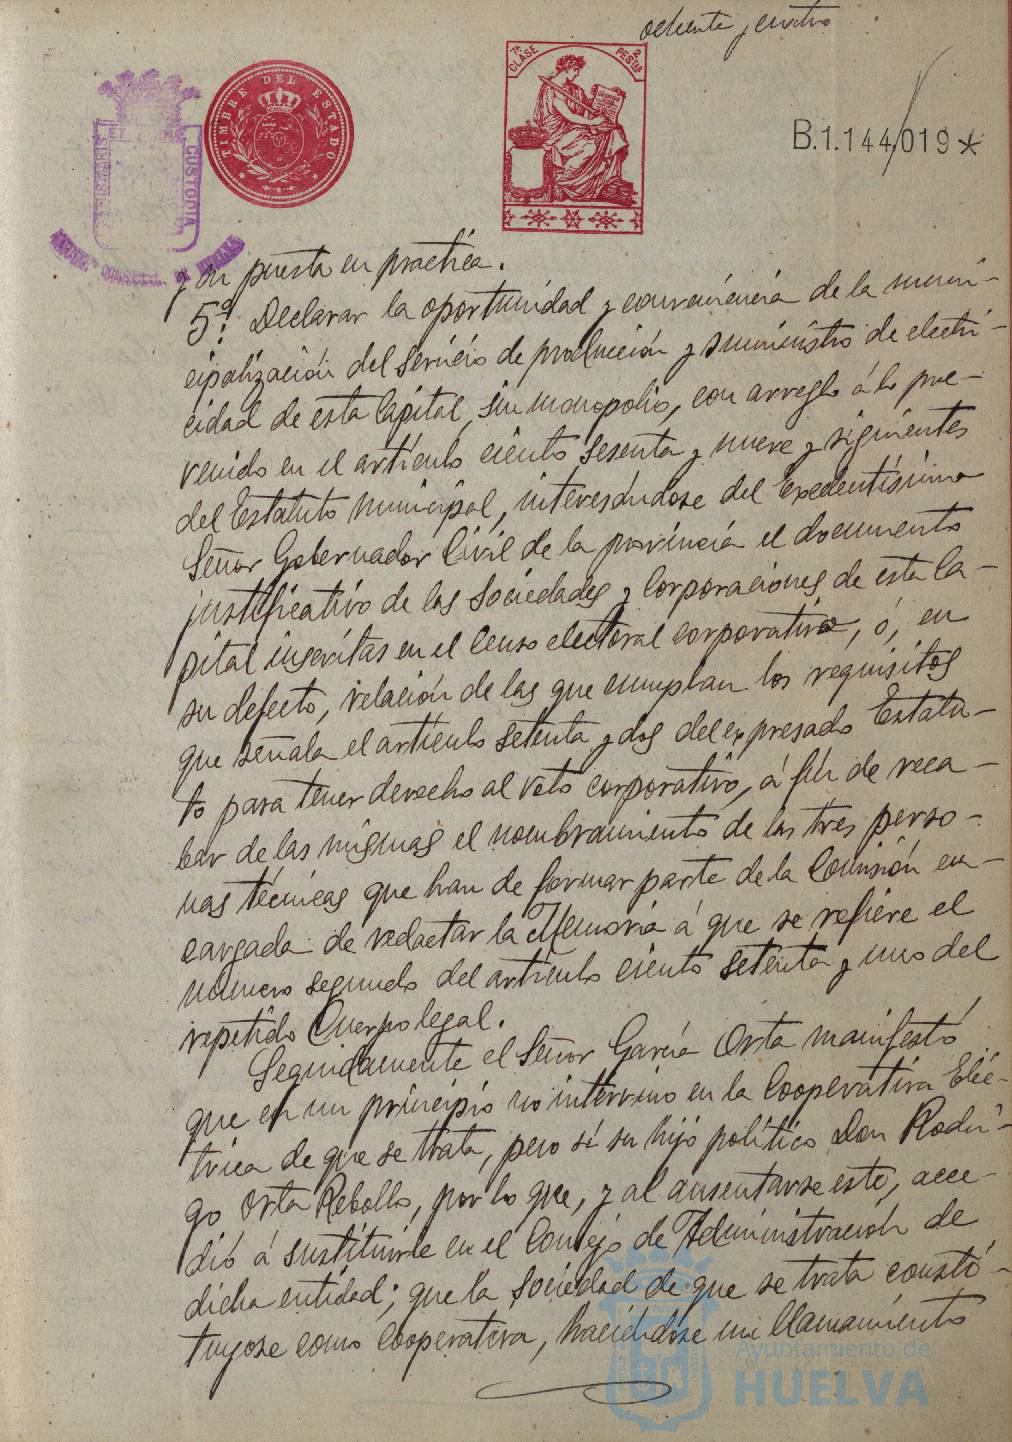 ochenta y cuatro
7ª CLASE
2 PESTAS
TIMBRE DEL ESTADO
CUSTODIA
B.1.144,019*
y su puesta en práctica.
5º. Declarar la oportunidad y conveniencia de la muni-
cipalización del servicio de producción y suministro de electri-
cidad de esta Capital, sin monopolio, con arreglo á lo pre-
venido en el artículo ciento sesenta y nueve y siguientes
del Estatuto municipal, interesándose del Excelentísimo
Señor Gobernador Civil de la provincia el documento
justificativo de las Sociedades y Corporaciones de esta Ca-
pital inscritas en el Censo electoral corporativo, ó, en
su defecto, relación de las que cumplan los requisitos
que señala el artículo setenta y dos del expresado Estatu-
to para tener derecho al voto corporativo, á fín de reca-
bar de las mismas el nombramiento de las tres perso-
nas técnicas que han de formar parte de la Comisión en-
cargada de redactar la Memoria á que se refiere el
número segundo del artículo ciento setenta y uno del
repetido Cuerpo legal.
Seguidamente el Señor García Orta manifestó
que en un principio no intervino en la Cooperativa Eléc-
trica de que se trata, pero sí su hijo político Don Rodri-
go Orta Rebollo, por lo que, y al ausentarse este, acce-
dió á sustituirle en el Consejo de Administración de
dicha entidad; que la Sociedad de que se trata constí-
tuyose como Cooperativa, haciéndose un llamamiento
Ayuntamiento de
HUELVA